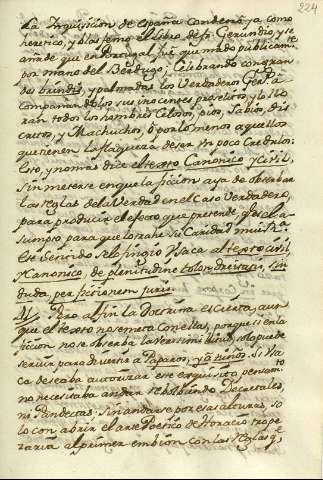 224
La Inquisicion de España condenó ya como
heretico, y blasfemo el libro de fr. Gerundio, y se
añade que en Portugal fue quemado publicamte
por mano del Verdugo; Celebrando con gran
des brindis, y palmadas los Verdaderos
compañandolos sus inocentes proselitos, y lo llo
ran todos los hombres Celosos, pios, Sabios, dis
cretos, y Machuchos, ó por lo menos aquellos
que tienen la flaqueza de ser un poco Credulos.
Esto, y no mas dice el texto Canonico, y Civil,
sin meterse en que la ficcion aya de observar
las reglas de la Verdad en el Caso Verdadero,
para producir el efecto que pretende, que es el a-
sumpto para que lo trahe su Caridad
Este sentido se lo fingió y saca al texto civil,
y Canonico, de plenitudine
duda, per fictionem juris.
Pero al fin la Doctrina es cierta, aun
que el texto no se meta con ellas, porque si en la
ficcion no se observa la verosimilitud, solo puede
servir para divertir a Paparos, y a niños. Si
ca deseaba autorizar ese exquisito pensamto
no necesitaba andar rebolbiendo Decretales,
ni Pandectas. Sin andarse por esas alturas, so
lo con abrir el arte Poetico de Horacio trope
zaria al primer embion con las Reglas qe